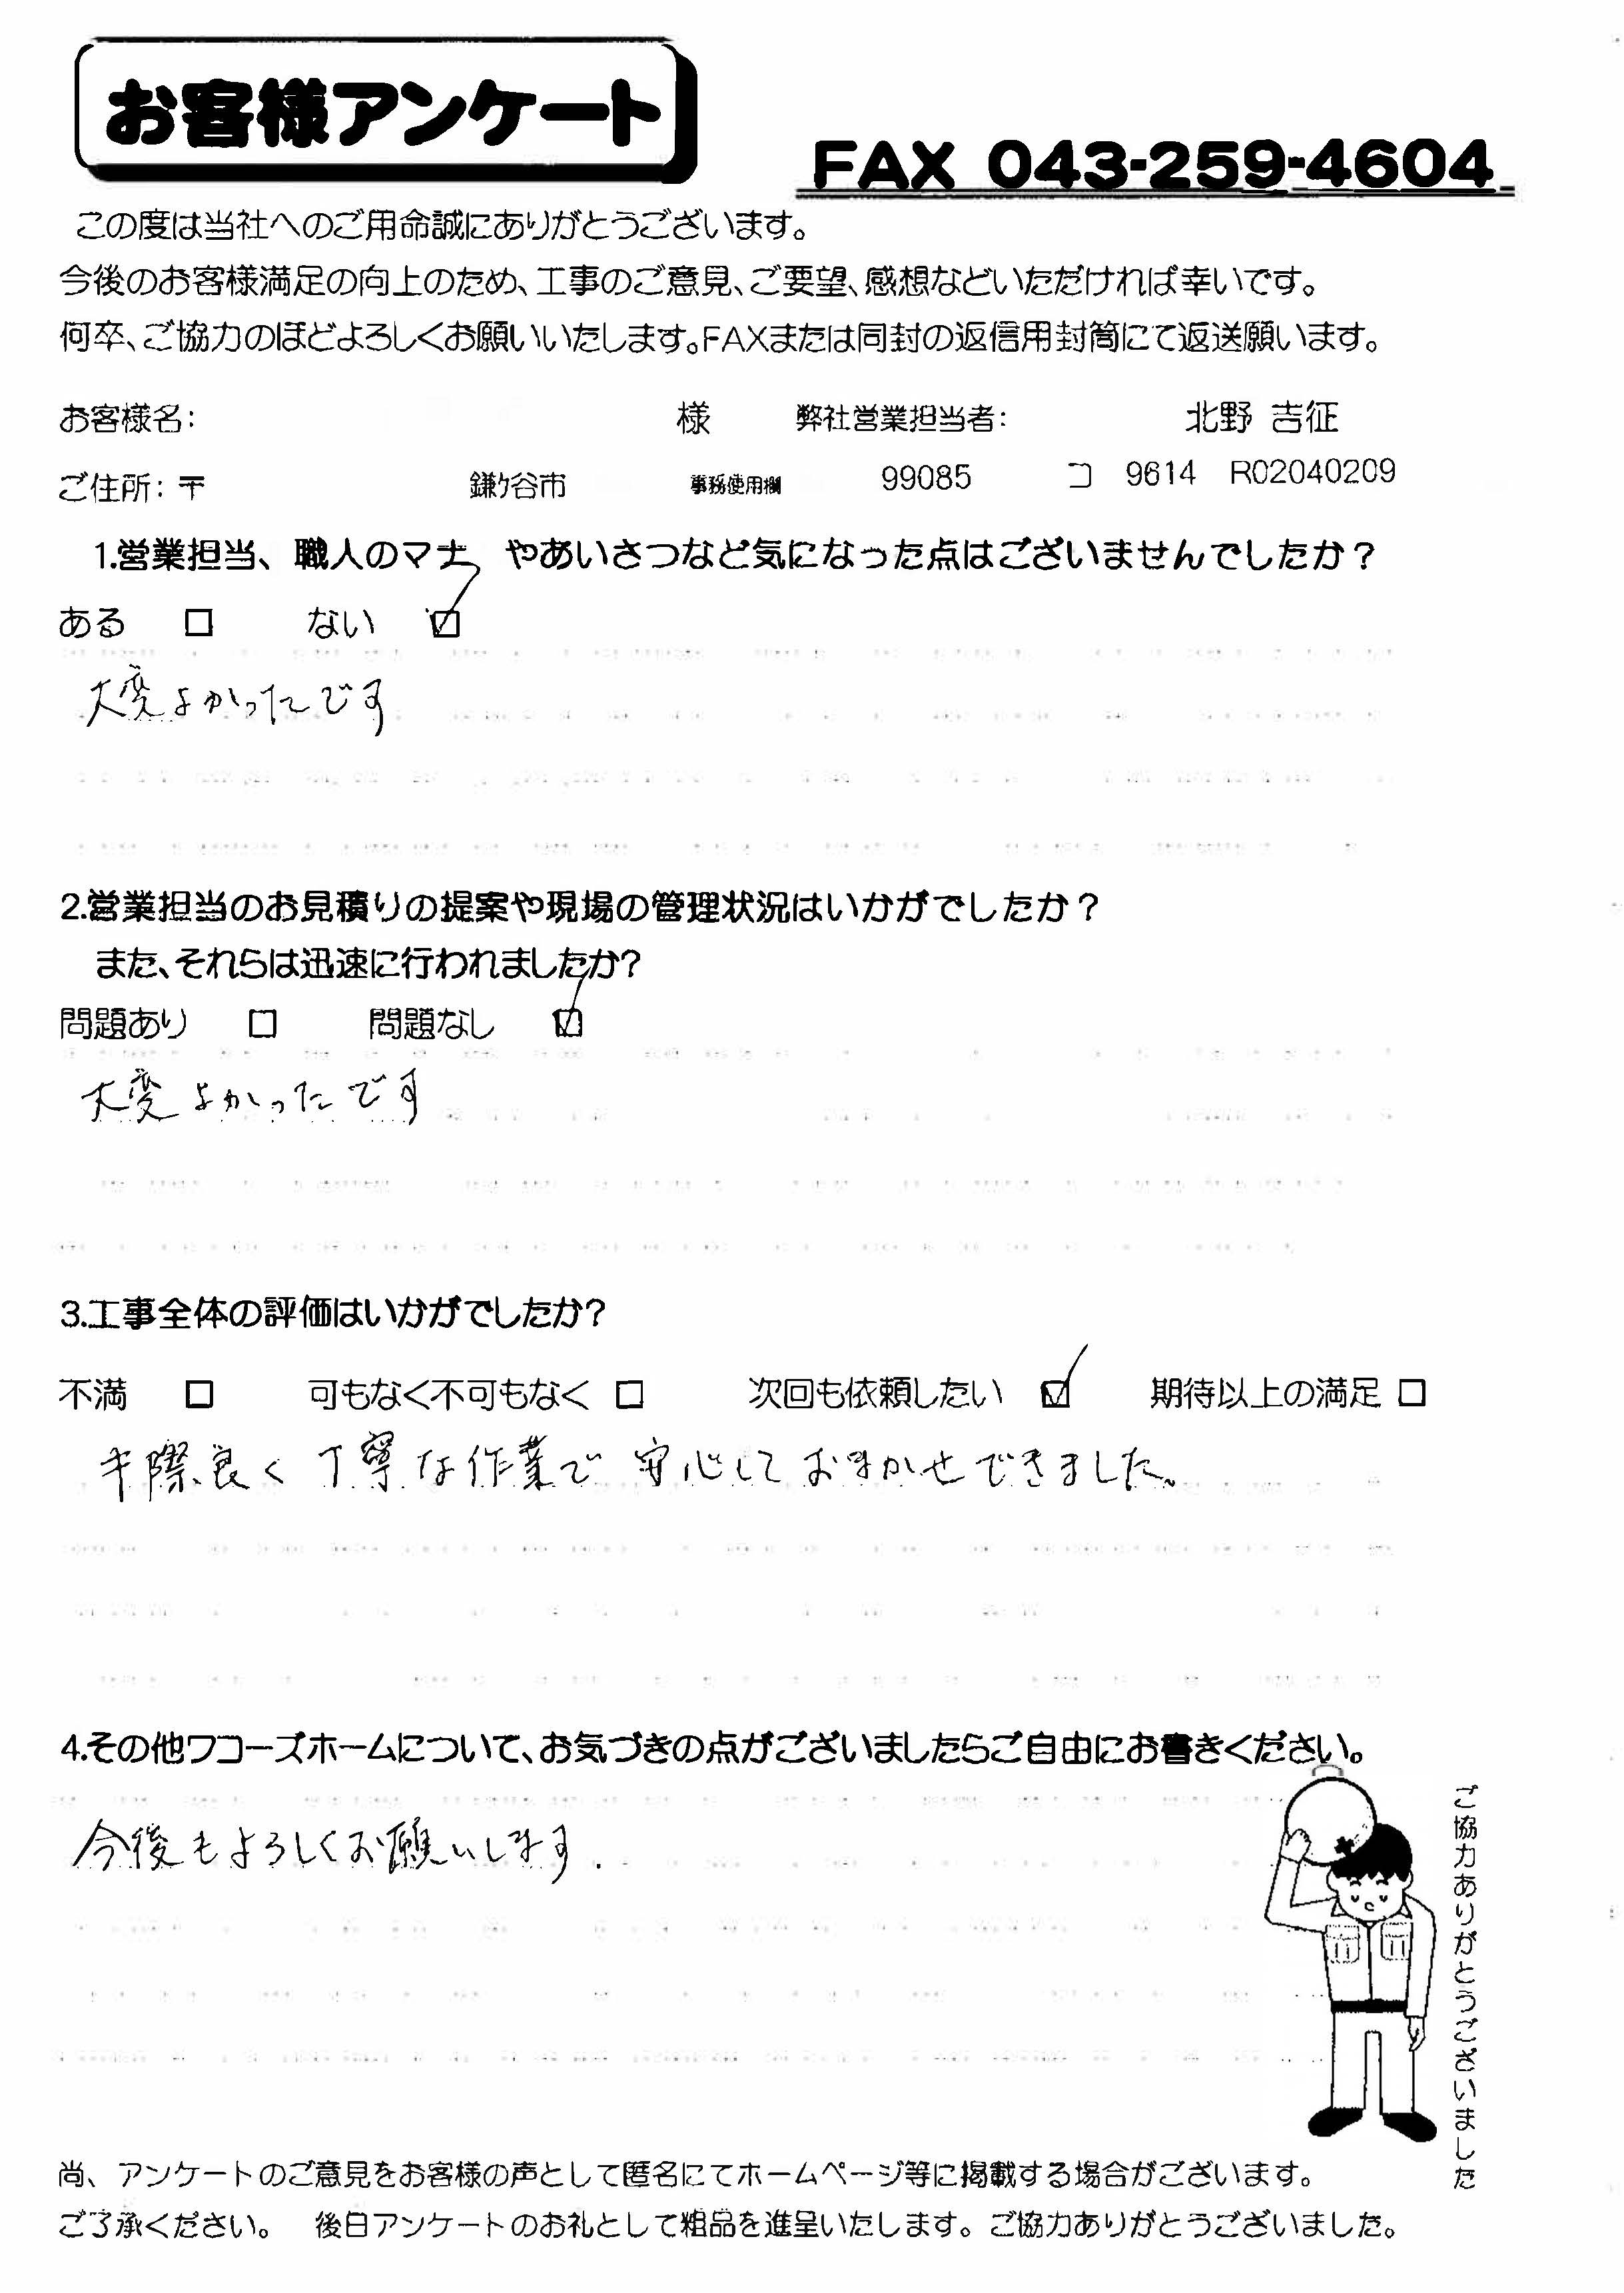 お客様アンケート
FAX 043-259-4604
この度は当社へのご用命誠にありがとうございます。
今後のお客様満足の向上のため、工事のご意見、ご要望、感想などいただければ幸いです。
何卒、ご協力のほどよろしくお願いいたします。FAXまたは同封の返信用封筒にて返送願います。
お客様名: 様 弊社営業担当者: 北野 吉征
ご住所: 〒 鎌ケ谷市 事務使用欄 99085 コ 9614 R02040209
1.営業担当、職人のマナ やあいさつなど気になった点はございませんでしたか?
ある □ ない ☑
大変よかったです
2.営業担当のお見積りの提案や現場の管理状況はいかがでしたか?
また、それらは迅速に行われましたか?
問題あり □ 問題なし ☑
大変よかったです
3.工事全体の評価はいかがでしたか?
不満 □ 可もなく不可もなく □ 次回も依頼したい ☑ 期待以上の満足 □
手際良く 丁寧な作業で 安心しておまかせできました。
4.その他ワコーズホームについて、お気づきの点がございましたらご自由にお書きください。
今後もよろしくお願いします.
ご協力ありがとうございました
尚、アンケートのご意見をお客様の声として匿名にてホームページ等に掲載する場合がございます。
ご了承ください。 後日アンケートのお礼として粗品を進呈いたします。ご協力ありがとうございました。